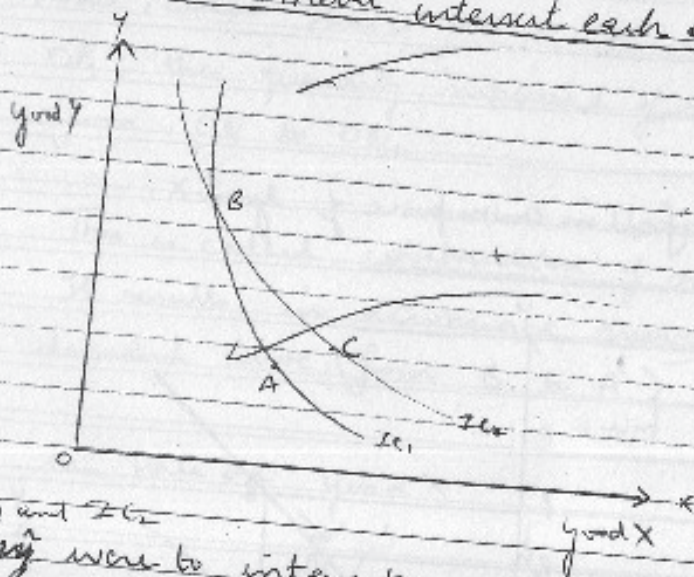 intersect each
Y
good Y
B
C
A
IC₂
IC₁
O
X
good X
and IC₂
were to